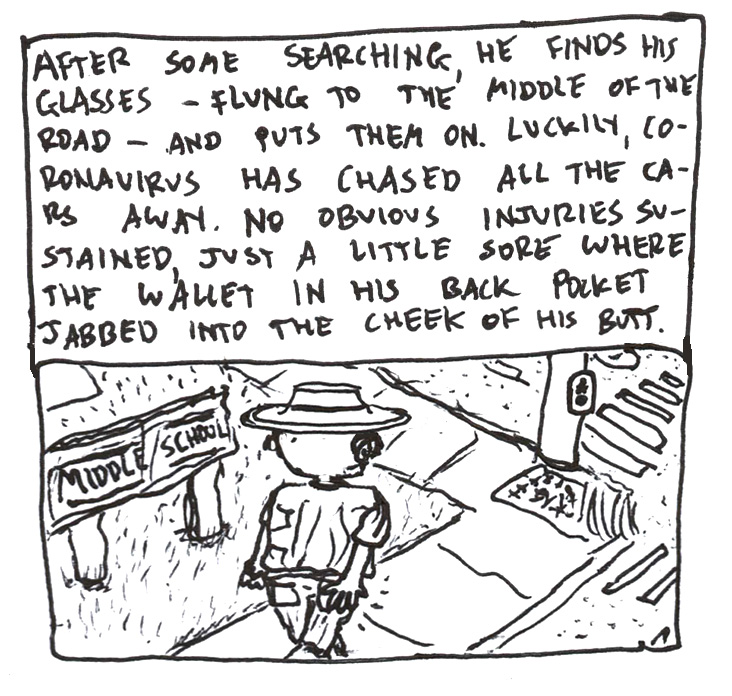 AFTER SOME SEARCHING, HE FINDS HIS
GLASSES – FLUNG TO THE MIDDLE OF THE
ROAD – AND PUTS THEM ON. LUCKILY, CO-
RONAVIRUS HAS CHASED ALL THE CA-
RS AWAY. NO OBVIOUS INJURIES SU-
STAINED, JUST A LITTLE SORE WHERE
THE WALLET IN HIS BACK POCKET
JABBED INTO THE CHEEK OF HIS BUTT.
MIDDLE SCHOOL